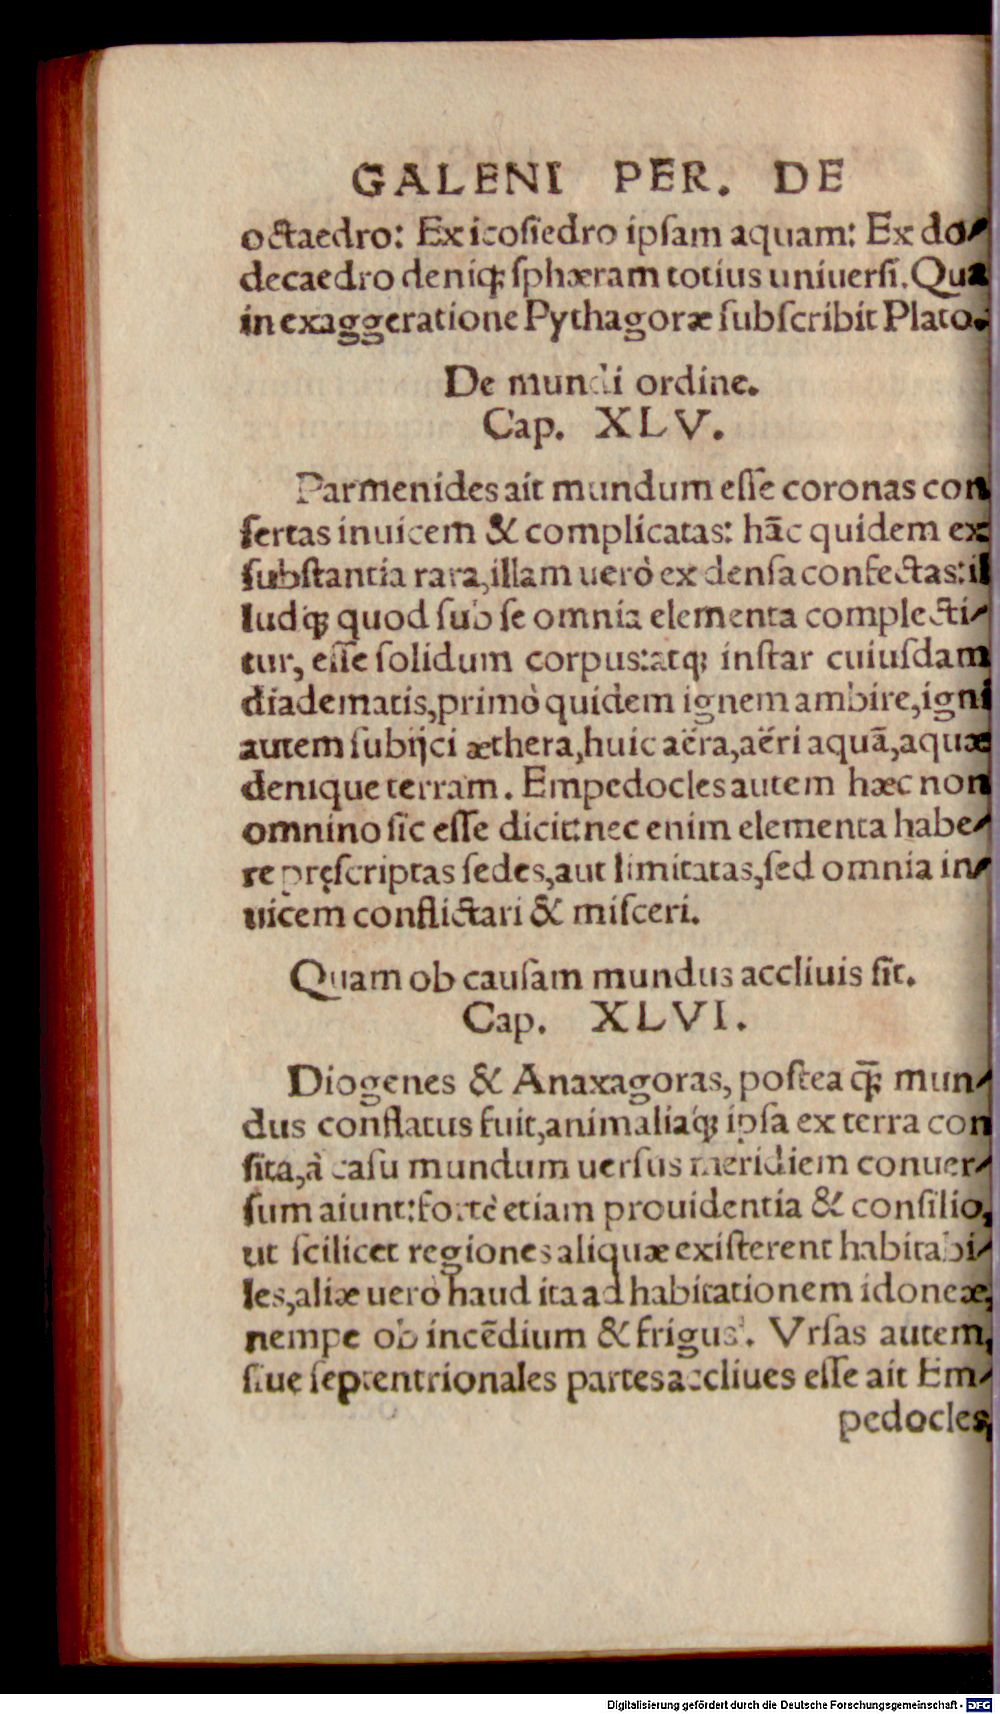 GALENI PER. DE
octaedro: Ex icosiedro ipsam aquam: Ex do-
decaedro deniq; sphæram totius uniuersi. Qua
in exaggeratione Pythagoræ subscribit Plato.
De mundi ordine.
Cap. XLV.
Parmenides ait mundum esse coronas con
sertas inuicem & complicatas: hāc quidem ex
substantia rara, illam uerò ex densa confectas: il
ludq; quod sub se omnia elementa complecti-
tur, esse solidum corpus: atq; instar cuiusdam
diadematis, primò quidem ignem ambire, igni
autem subijci æthera, huic aëra, aëri aquā, aquæ
denique terram. Empedocles autem hæc non
omnino sic esse dicit: nec enim elementa habe-
re pręscriptas sedes, aut limitatas, sed omnia in-
uicem conflictari & misceri.
Quam ob causam mundus accliuis sit.
Cap. XLVI.
Diogenes & Anaxagoras, postea q̄; mun-
dus conflatus fuit, animaliaq́; ipsa ex terra con
sita, à casu mundum uersus meridiem conuer-
sum aiunt: fortè etiam prouidentia & consilio,
ut scilicet regiones aliquæ existerent habitabi-
les, aliæ uerò haud ita ad habitationem idoneæ,
nempe ob incēdium & frigus. Vrsas autem,
siue septentrionales partes accliues esse ait Em-
pedocles,
Digitalisierung gefördert durch die Deutsche Forschungsgemeinschaft - DFG